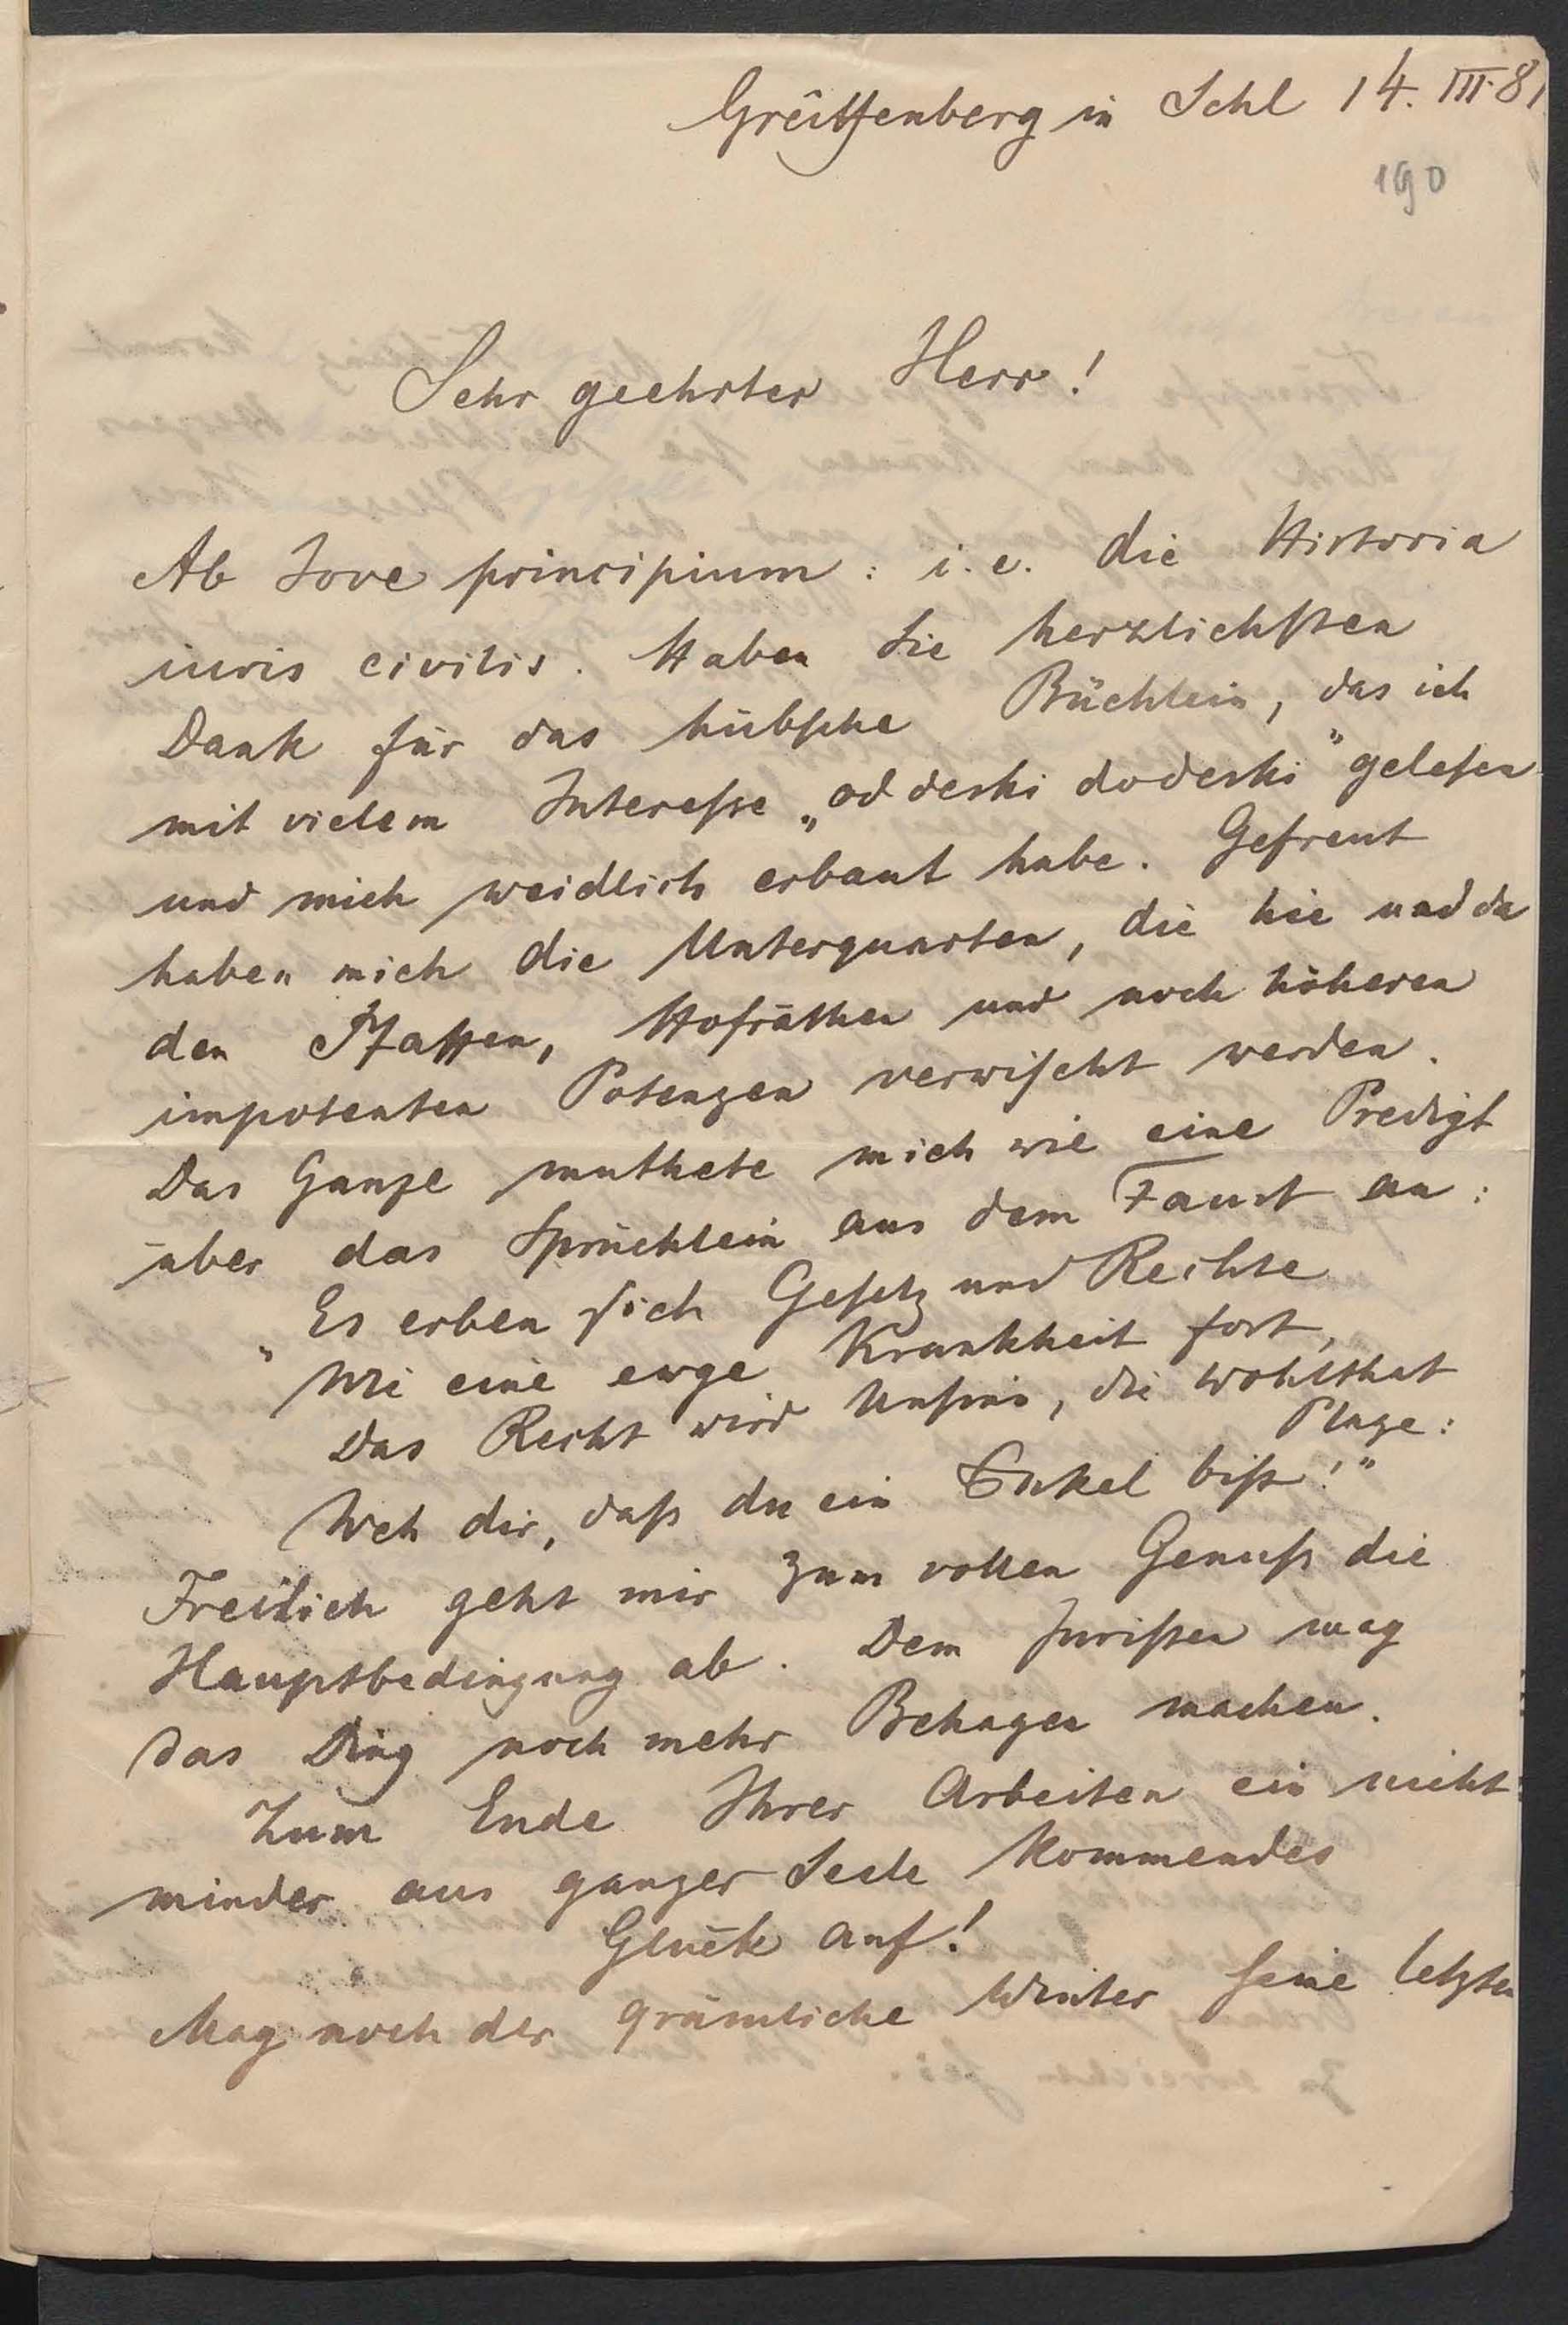 Greiffenberg in Schl 14. III. 81
190
Sehr geehrter Herr!
Ab Jove principium: i. e. die Historia
iuris civilis. Haben Sie herzlichsten
Dank für das hübsche Büchlein, das ich
mit vielem Interesse „od deski dodeski" gelesen
und mich weidlich erbaut habe. Gefreut
haben mich die Unterquarten, die hie und da
den Pfaffen, Hofräthen und noch höheren
impotenten Potenzen verwischt werden.
Das Ganze muthete mich wie eine Predigt
über das Sprüchlein aus dem Faust an:
"Es erben sich Gesetz und Rechte
Wie eine ewge Krankheit fort,
Das Recht wird Unsinn, die Wohlthat
Plage:
Weh dir, daß du ein Enkel bist!"
Freilich geht mir zum vollen Genuß die
Hauptbedingung ab. Dem Juristen mag
das Ding noch mehr Behagen machen.
Zum Ende Ihrer Arbeiten ein nicht
minder aus ganzer Seele kommendes
Glück auf!
Mag noch der grämliche Winter seine letzten